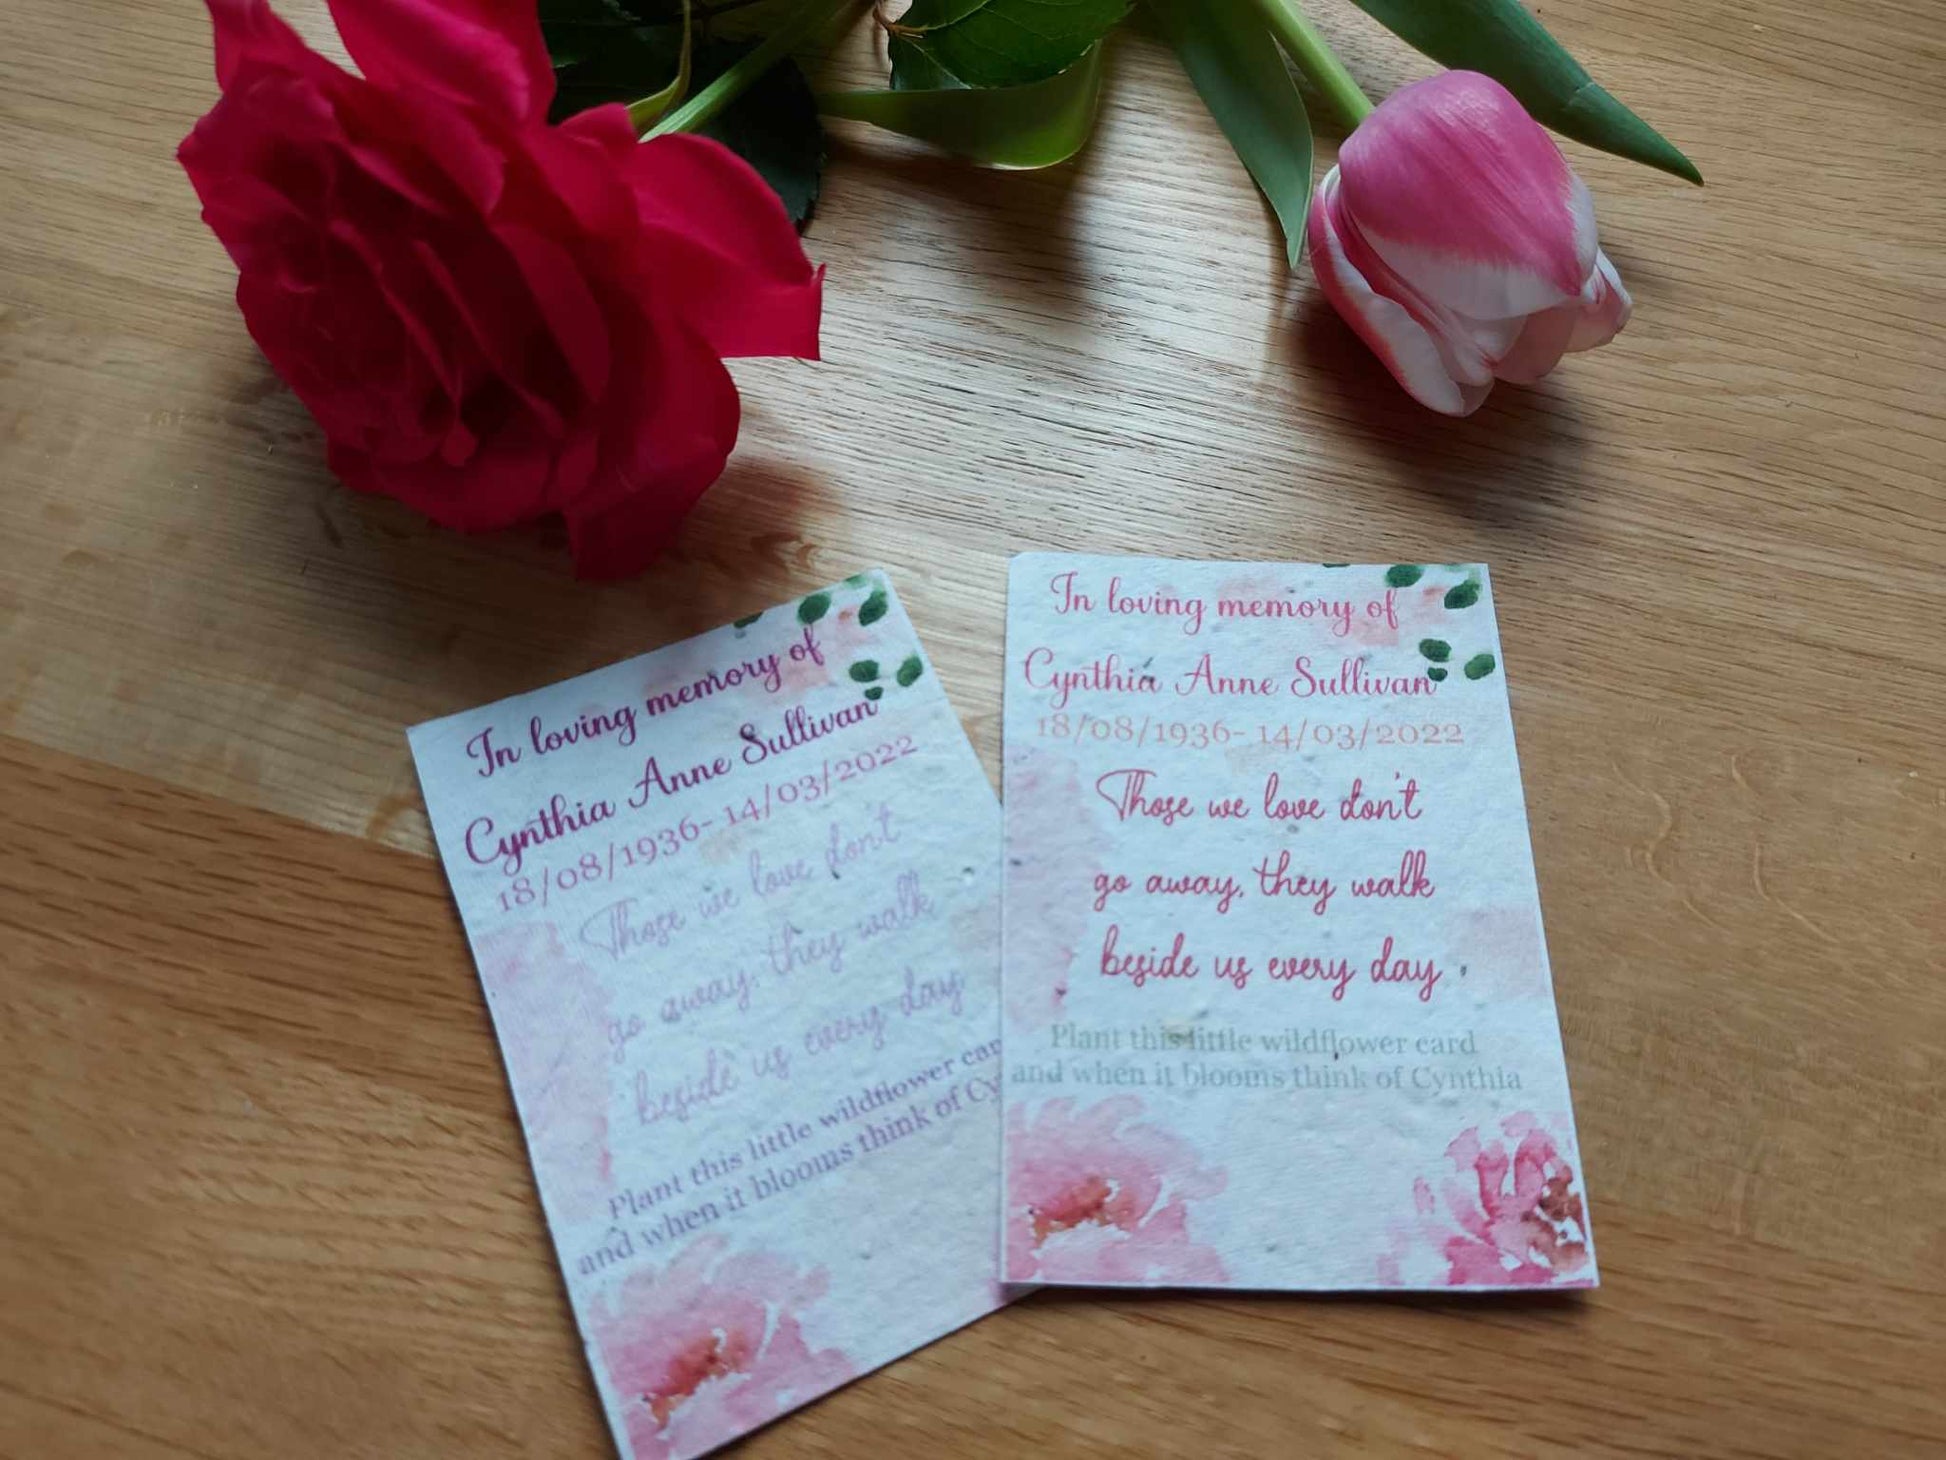 In loving memory of
Cynthia Anne Sullivan
18/08/1936- 14/03/2022
Those we love don't
go away, they walk
beside us every day
Plant this little wildflower car
and when it blooms think of Cy
In loving memory of
Cynthia Anne Sullivan
18/08/1936- 14/03/2022
Those we love don't
go away, they walk
beside us every day
Plant this little wildflower card
and when it blooms think of Cynthia